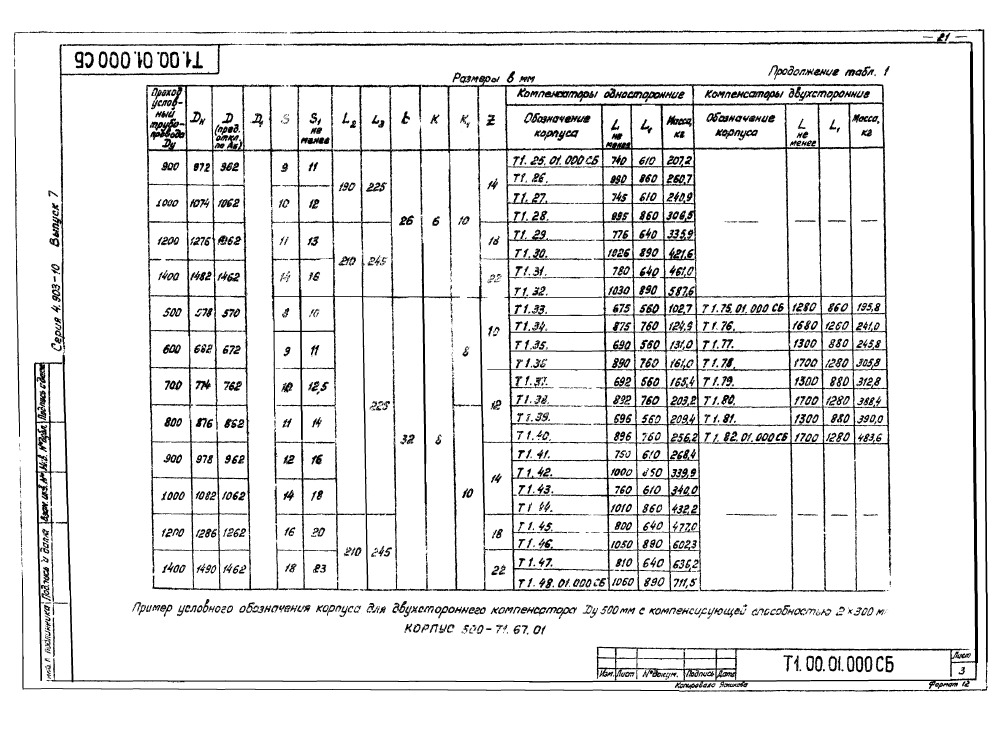 — 21 —
Т1.00.01.000 СБ
Размеры в мм
Продолжение табл. 1
Проход условный трубопровода Dу | Dн | D (пред. откл. по А5) | D1 | S | S1 не менее | L2 | L3 | b | К | К1 | Z | Компенсаторы односторонние | Компенсаторы двухсторонние
Обозначение корпуса | L не менее | L1 | Масса, кг | Обозначение корпуса | L не менее | L1 | Масса, кг
900 | 972 | 962 | 9 | 11 | 190 | 225 | 26 | 6 | 10 | 14 | Т1.25.01.000 СБ | 740 | 610 | 207,2
Т1.26. | 990 | 860 | 260,7
1000 | 1074 | 1062 | 10 | 12 | Т1.27. | 745 | 610 | 240,9 | — | — | — | —
Т1.28. | 995 | 860 | 306,5
1200 | 1276 | 1262 | 11 | 13 | 210 | 245 | 18 | Т1.29. | 776 | 640 | 335,9
Т1.30. | 1026 | 890 | 421,6
1400 | 1482 | 1462 | 14 | 16 | 22 | Т1.31. | 780 | 640 | 461,0
Т1.32. | 1030 | 890 | 587,6
500 | 578 | 570 | 8 | 10 | 225 | 32 | 8 | 8 | 10 | Т1.33. | 675 | 560 | 102,7 | Т1.75.01.000 СБ | 1280 | 860 | 195,8
Т1.34. | 875 | 760 | 124,9 | Т1.76. | 1680 | 1260 | 241,0
600 | 682 | 672 | 9 | 11 | Т1.35. | 690 | 560 | 131,0 | Т1.77. | 1300 | 880 | 245,8
Т1.36 | 890 | 760 | 161,0 | Т1.78. | 1700 | 1280 | 305,8
700 | 774 | 762 | 10 | 12,5 | 12 | Т1.37. | 692 | 560 | 165,4 | Т1.79. | 1300 | 880 | 312,8
Т1.38. | 892 | 760 | 203,2 | Т1.80. | 1700 | 1280 | 388,4
800 | 876 | 862 | 11 | 14 | 10 | Т1.39. | 696 | 560 | 209,4 | Т1.81. | 1300 | 880 | 390,0
Т1.40. | 896 | 760 | 256,2 | Т1.82.01.000 СБ | 1700 | 1280 | 483,6
900 | 978 | 962 | 12 | 16 | 14 | Т1.41. | 750 | 610 | 268,4
Т1.42. | 1000 | 850 | 339,9
1000 | 1082 | 1062 | 14 | 18 | Т1.43. | 760 | 610 | 340,0
Т1.44. | 1010 | 860 | 432,2 | — | — | — | —
1200 | 1286 | 1262 | 16 | 20 | 210 | 245 | 18 | Т1.45. | 800 | 640 | 477,0
Т1.46. | 1050 | 890 | 602,3
1400 | 1490 | 1462 | 18 | 23 | 22 | Т1.47. | 810 | 640 | 636,2
Т1.48.01.000 СБ | 1060 | 890 | 711,5
Пример условного обозначения корпуса для двухстороннего компенсатора Dу 500 мм с компенсирующей способностью 2×300 м:
КОРПУС 500–Т1.67.01
Серия 4.903–10 Выпуск 7
Инв.№ подлинника Подпись и дата Взам. инв.№ Инв.№ дубл. Подпись и дата
Изм. Лист № докум. Подпись Дата
Т1.00.01.000 СБ
Лист
3
Копировала
Формат 12